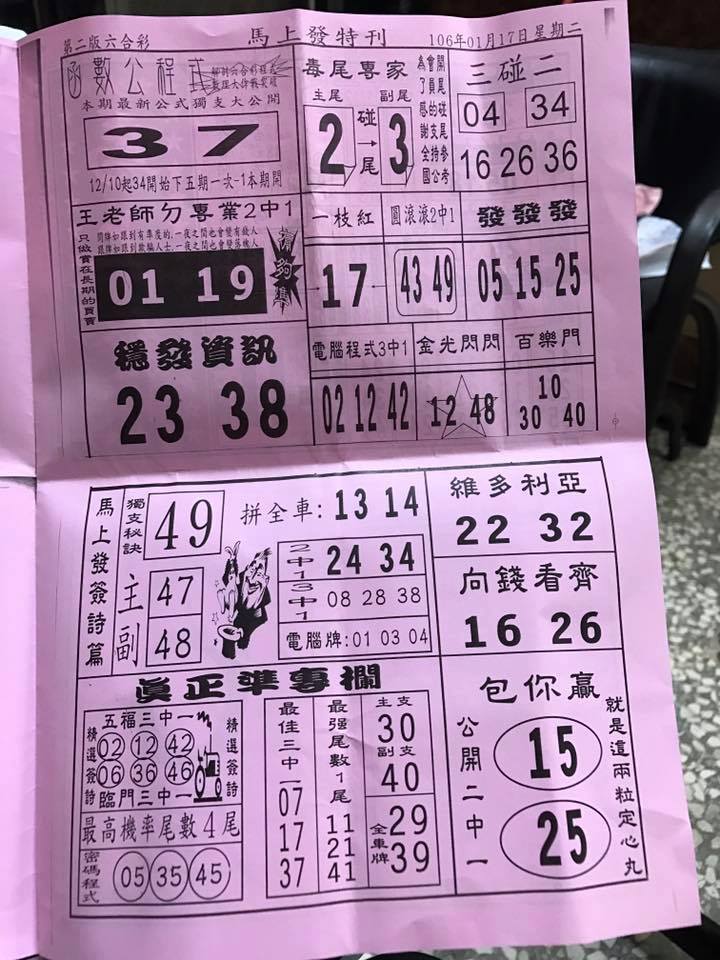 第二版六合彩
馬上發特刊
106年01月17日星期二
函數公程式
本期最新公式獨支大公開
37
12/10起34開始下五期一次-1本期開
毒尾專家
主尾
副尾
2
碰→尾
3
為會開
了員尾
感的碰
謝支尾
全持參
國公考
三碰二
04 34
16 26 36
王老師ㄉ專業2中1
只做實在長期的買賣
01 19
夠準
一枝紅
17
圓滾滾2中1
43 49
發發發
05 15 25
穩發資訊
23 38
電腦程式3中1
02 12 42
金光閃閃
12 48
百樂門
10
30 40
馬上發簽詩篇
獨支秘訣
49
主
47
副
48
拼全車:13 14
2中1
24 34
3中1
08 28 38
電腦牌:01 03 04
維多利亞
22 32
向錢看齊
16 26
真正準專欄
五福三中一
精選簽詩
02 12 42
06 36 46
精選簽詩
臨門三中一
最高機率尾數4尾
密碼程式
05 35 45
最佳三中一
07
17
37
最强尾數1尾
11
21
41
主支
30
副支
40
全車牌
29
39
包你贏
公開二中一
15
25
就是這兩粒定心丸